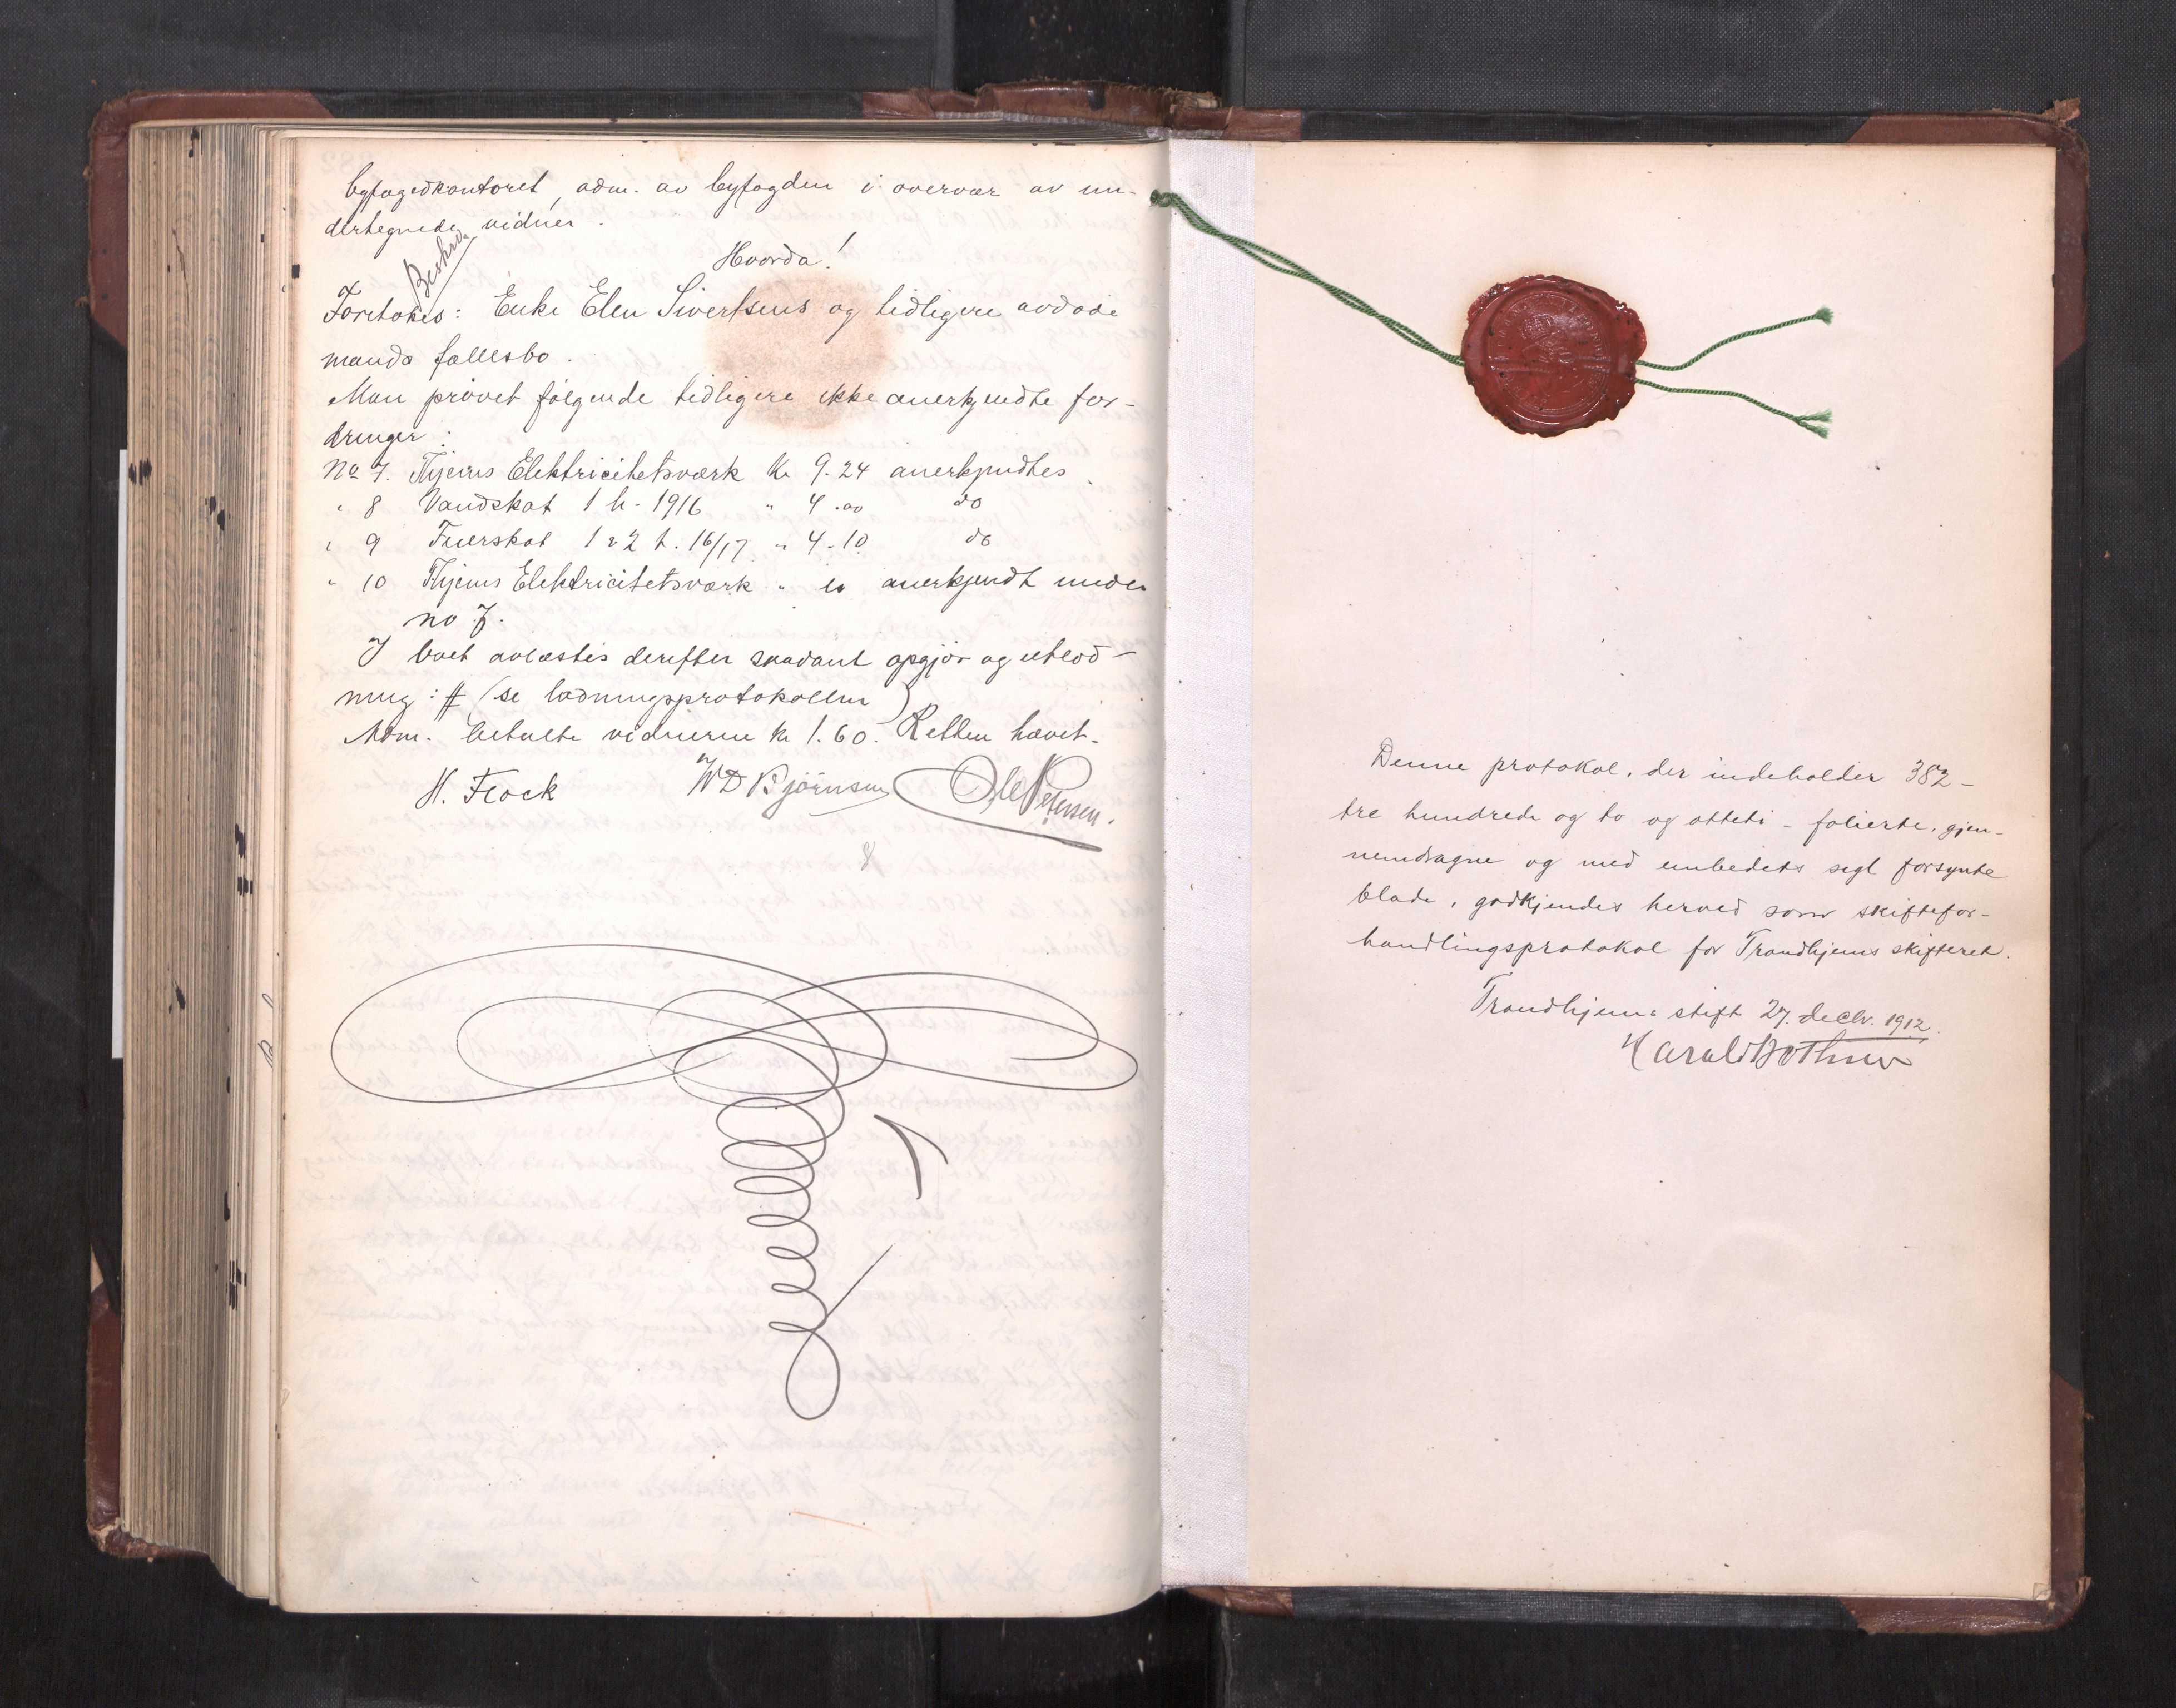 byfogedkontoret, adm. av byfogden i overvær av un-
dertegnede vidner.
Beskr.
Hvorda!
Foretokes: Enke Elen Sivertsens og tidligere avdøde
mands fællesbo.
Man prøvet følgende tidligere ikke anerkjendte for-
dringer:
No 7. Thjems Elektricitetsværk Kr 9.24 anerkjendtes.
" 8 Vandskat 1 h. 1916 " 4.00 do
" 9 Feierskat 1 & 2 t. 16/17 " 4.10 do
" 10 Thjems Elektricitetsværk " er anerkjendt under
no 7.
I boet avlæstes derefter saadant opgjør og utlod-
ning: # (se lodningsprotokollen)
Adm. betalte vidnerne kr 1.60. Retten hævet.
H. Flock WD Bjørnsen Ole Petersen.
Denne protokol, der indeholder 382 -
tre hundrede og to og otteti - folierte, gjen-
nemdragne og med embedets segl forsynte
blade, godkjendes herved som skiftefor-
handlingsprotokol for Trondhjems skifteret.
Trondhjems stift 27. decbr. 1912.
Harald Bothner